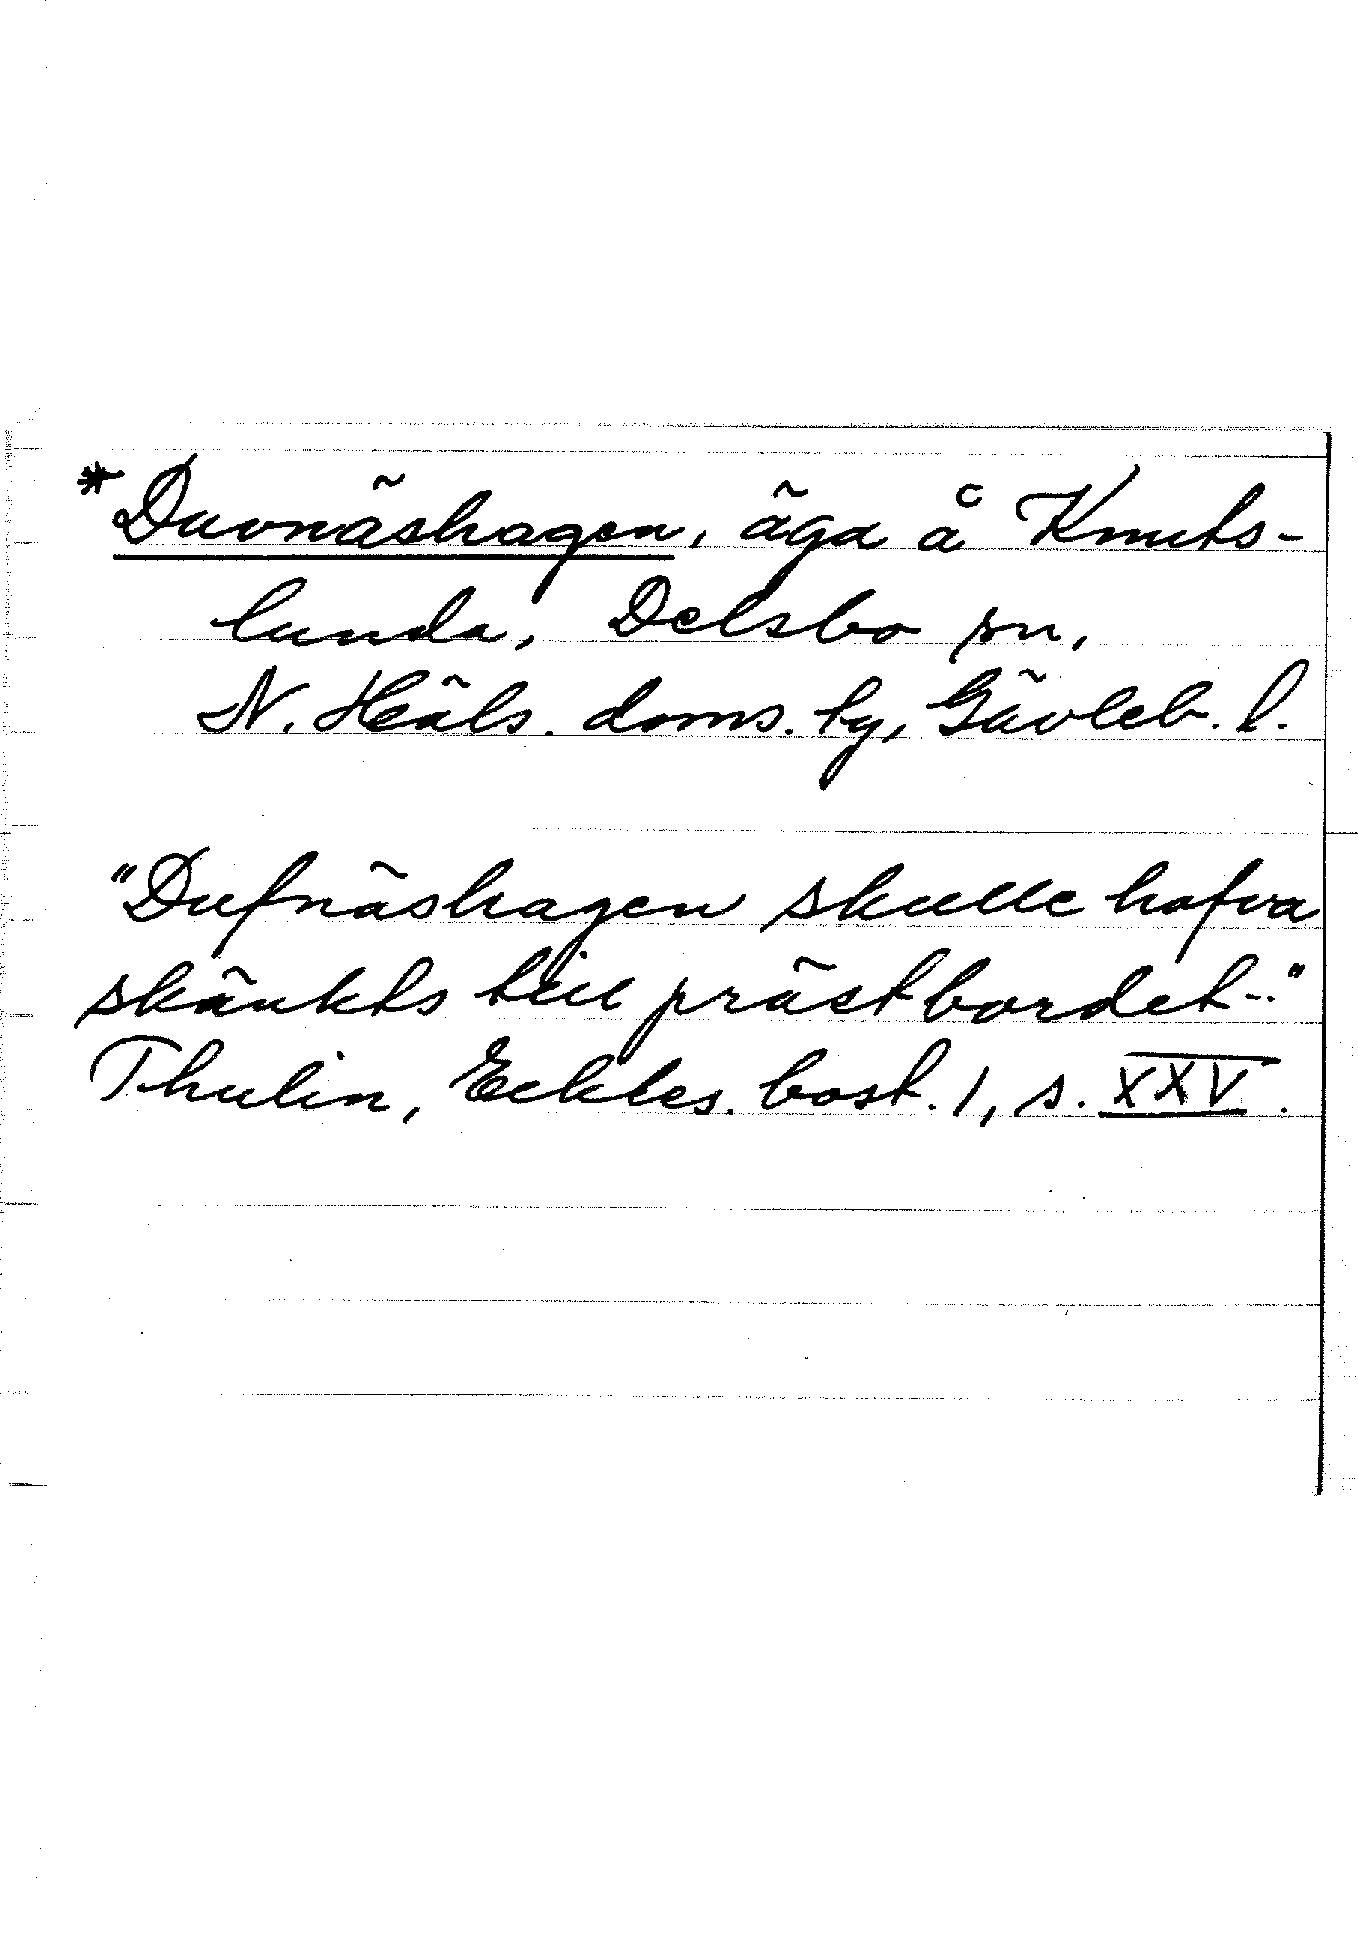 *Duvnäshagen, äga å Knuts-
lunda, Delsbo sn,
N. Häls. doms. tg, Gävleb. l.
"Dufnäshagen skulle hafva
skänkts till prästbordet-.."
Thulin, Eckles. bost. 1, s. XXV.